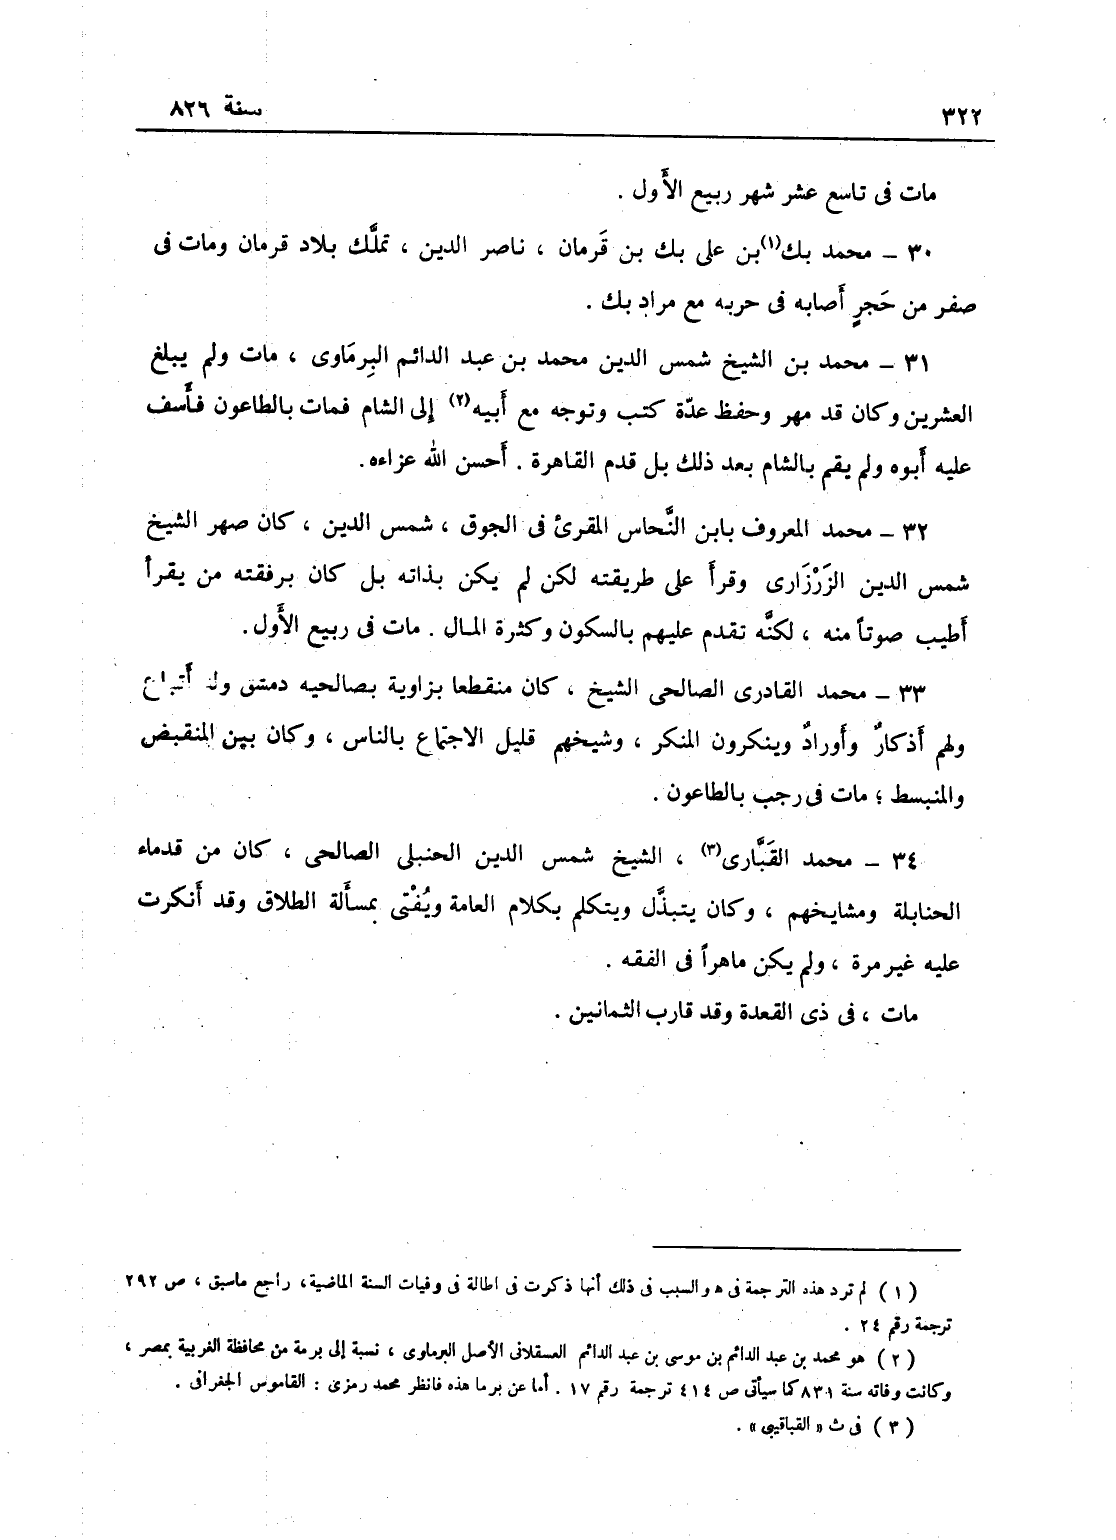 ٣٢٢ سنة ٨٢٦
مات فى تاسع عشر شهر ربيع الأَول .
٣٠ ــ محمد بك(١)بن على بك بن قَرمان ، ناصر الدين ، تملَّك بلاد قرمان ومات فى
صفر من حَجرٍ أَصابه فى حربه مع مراد بك .
٣١ ــ محمد بن الشيخ شمس الدين محمد بن عبد الدائم البِرمَاوى ، مات ولم يبلغ
العشرين وكان قد مهر وحفظ عدّة كتب وتوجه مع أَبيه(٢) إلى الشام فمات بالطاعون فأَسف
عليه أَبوه ولم يقم بالشام بعد ذلك بل قدم القاهرة . أَحسن الله عزاءه .
٣٢ ــ محمد المعروف بابن النَّحاس المقرئ فى الجوق ، شمس الدين ، كان صهر الشيخ
شمس الدين الزَرْزَارى وقرأَ على طريقته لكن لم يكن بذاته بل كان برفقته من يقرأ
أَطيب صوتاً منه ، لكنَّه تقدم عليهم بالسكون وكثرة المال . مات فى ربيع الأَول .
٣٣ ــ محمد القادرى الصالحى الشيخ ، كان منقطعا بزاوية بصالحيه دمشق وله أَتباع
ولهم أَذكارٌ وأَورادٌ وينكرون المنكر ، وشيخهم قليل الاجتماع بالناس ، وكان بين المنقبض
والمنبسط ؛ مات فى رجب بالطاعون .
٣٤ ــ محمد القَبَّارى(٣) ، الشيخ شمس الدين الحنبلى الصالحى ، كان من قدماء
الحنابلة ومشايخهم ، وكان يتبذَّل ويتكلم بكلام العامة ويُفْتى بمسأَلة الطلاق وقد أَنكرت
عليه غير مرة ، ولم يكن ماهراً فى الفقه .
مات ، فى ذى القعدة وقد قارب الثمانين .
( ١ ) لم ترد هذه الترجمة فى ه والسبب فى ذلك أنها ذكرت فى اطالة فى وفيات السنة الماضية، راجع ماسبق ، ص ٢٩٢
ترجمة رقم ٢٤ .
( ٢ ) هو محمد بن عبد الدائم بن موسى بن عبد الدائم العسقلانى الأصل البرماوى ، نسبة إلى برمة من محافظة الغربية بمصر ،
وكانت وفاته سنة ٨٣١ كما سيأتى ص ٤١٤ ترجمة رقم ١٧ . أما عن برما هذه فانظر محمد رمزى : القاموس الجغرافى .
( ٣ ) فى ث « القباقيبى » .